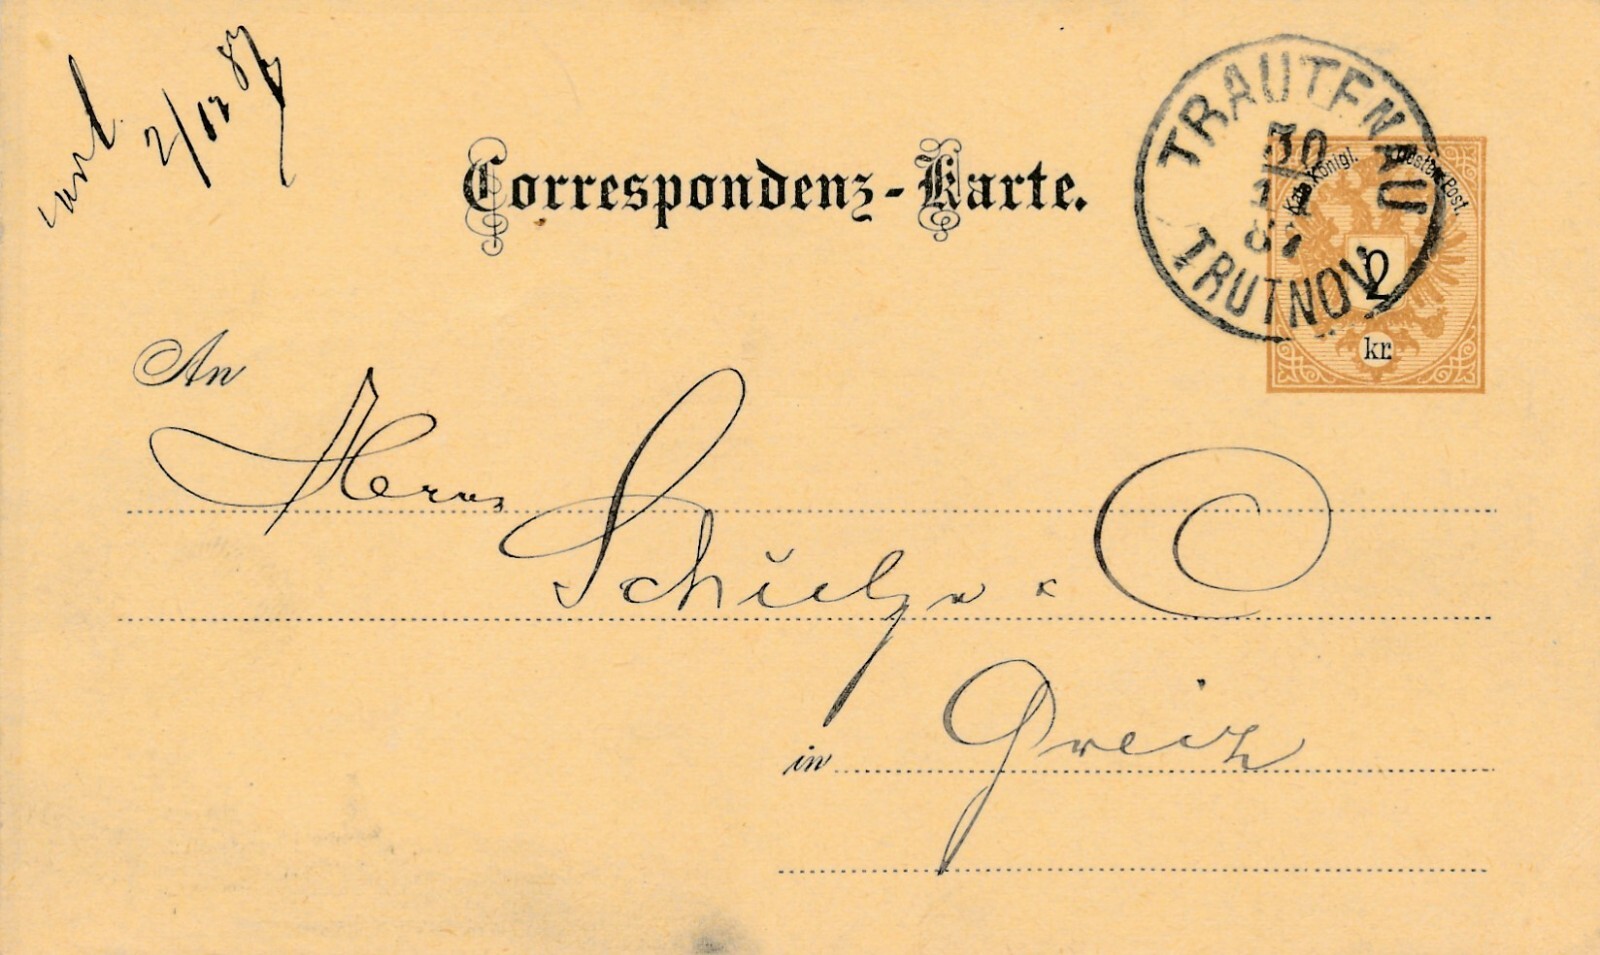 2/12 87
Correspondenz-Karte.
TRAUTENAU
30
11
87
TRUTNOV
Kais. Königl. Oesterr. Post.
2
kr.
An
Herrn
& C
in Greiz